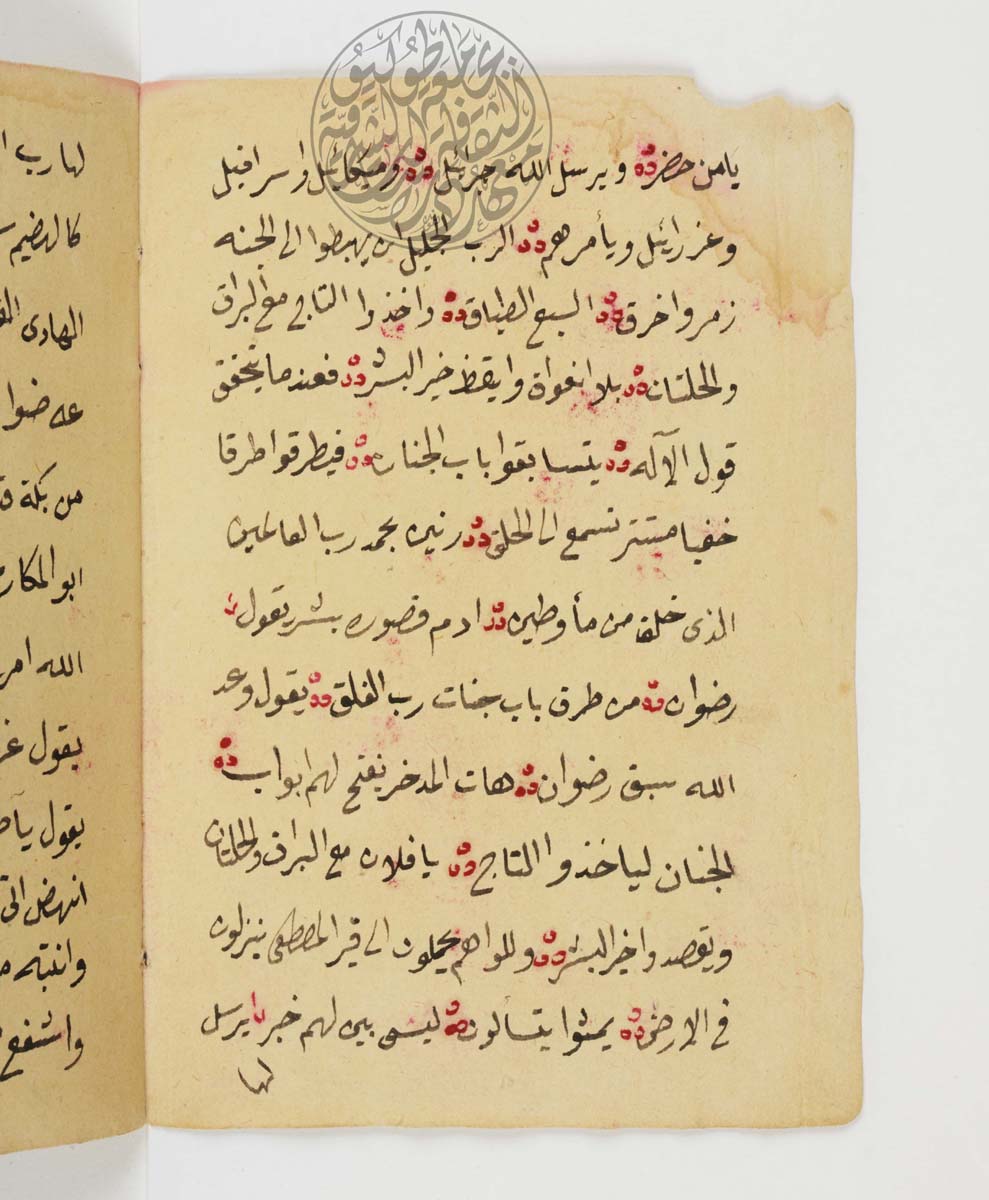 يامن حضر ويرسل الله جبرائيل وميكائيل واسرافيل
وعزرائيل ويأمرهم الرب الجليل ان يهبطوا الى الجنه
زمروا خرق السبع الطباق واخذوا التاج مع البراق
والحلتان بلا اغواة وايقظ خير البشر فعندما يتحقق
قول الآله يتسابقوا باب الجنان فيطرقوا طرقا
خفيا مستتر تسمع الى الحلق رنين بحمد رب العالمين
الذى خلق من مأ وطين ادم فصوره بشر يقول
رضوان من طرق باب جنات رب الفلق يقول وعد
الله سبق رضوان هات المدخر يفتح لهم ابواب
الجنان لياخذوا التاج يا فلان مع البراق والحلتان
ويقصدوا خير البشر وللواهم يحملون الى قبر المصطفى ينزلون
فى الارض يمشوا يتسألون ليس يبن لهم خبر يرسل
لها
لها رب
كالهضيم
الهادى
عه ضوا
من بكة
ابو المكار
الله امر
يقول
يقول
انهض الى
وانتبه
واشفع